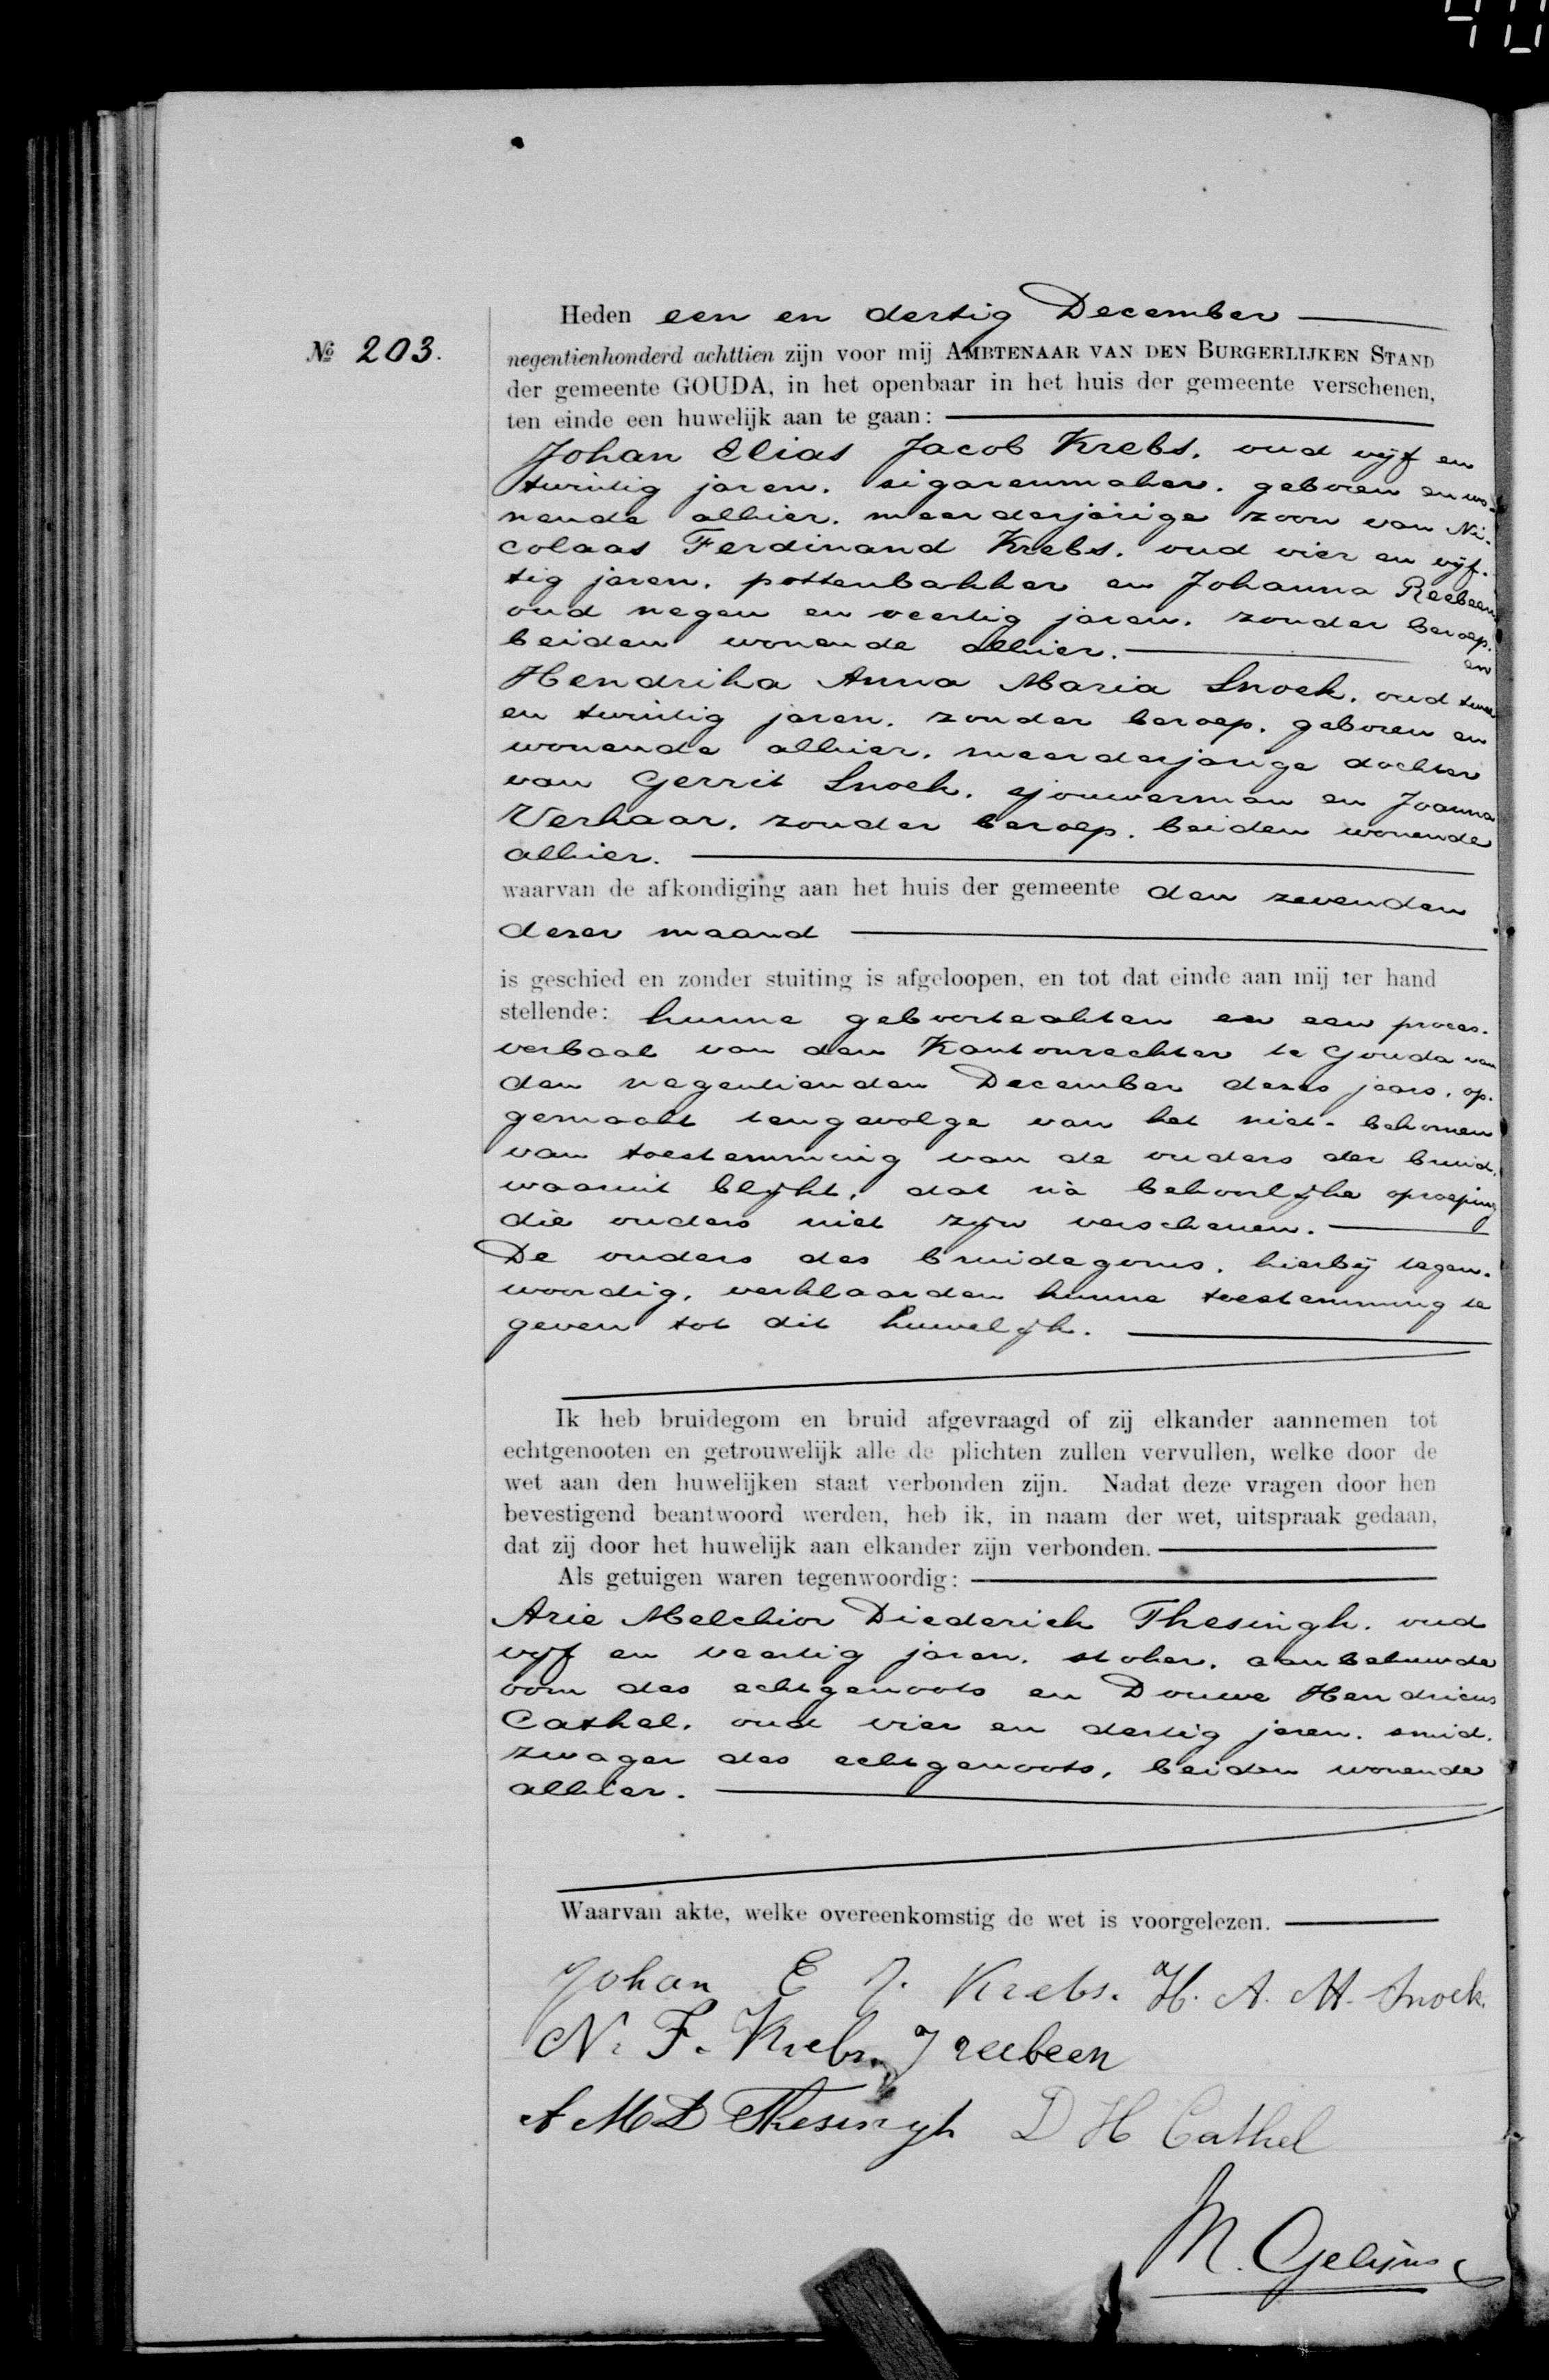 Heden een en dertig December
№ 203.
negentienhonderd achttien zijn voor mij AMBTENAAR VAN DEN BURGERLIJKEN STAND
der gemeente GOUDA, in het openbaar in het huis der gemeente verschenen,
ten einde een huwelijk aan te gaan:
Johan Elias Jacob Krebs, oud vijf en
twintig jaren, sigarenmaker, geboren en wo-
nende alhier, meerderjarige zoon van Ni-
colaas Ferdinand Krebs, oud vier en vijf-
tig jaren, pottenbakker en Johanna Reebeen
oud negen en veertig jaren, zonder beroep,
beiden wonende alhier. en
Hendrika Anna Maria Snoek, oud twee
en twintig jaren, zonder beroep, geboren en
wonende alhier, meerderjarige dochter
van Gerrit Snoek, sjouwerman en Joanna
Verhaar, zonder beroep, beiden wonende
alhier.
waarvan de afkondiging aan het huis der gemeente den zevenden
dezer maand
is geschied en zonder stuiting is afgeloopen, en tot dat einde aan mij ter hand
stellende: hunne geboorteakten en een proces-
verbaal van den Kantonrechter te Gouda van
den negentienden December dezes jaars, op-
gemaakt tengevolge van het niet-bekomen
van toestemming van de ouders der bruid,
waaruit blijkt, dat na behoorlijke oproeping
die ouders niet zijn verschenen.
De ouders des bruidegoms, hierbij tegen-
woordig, verklaarden hunne toestemming te
geven tot dit huwelijk.
Ik heb bruidegom en bruid afgevraagd of zij elkander aannemen tot
echtgenooten en getrouwelijk alle de plichten zullen vervullen, welke door de
wet aan den huwelijken staat verbonden zijn. Nadat deze vragen door hen
bevestigend beantwoord werden, heb ik, in naam der wet, uitspraak gedaan,
dat zij door het huwelijk aan elkander zijn verbonden.
Als getuigen waren tegenwoordig:
Arie Melchior Diederich Thesingh, oud
vijf en veertig jaren, stoker, aanbehuwde
oom des echtgenoots en Douwe Hendricus
Cathel, oud vier en dertig jaren, smid,
zwager des echtgenoots, beiden wonende
alhier.
Waarvan akte, welke overeenkomstig de wet is voorgelezen.
Johan E J. Krebs. H. A. M. Snoek.
N. F. Krebs. J reebeen
A M D Thesingh D H Cathel
M. Gelijns